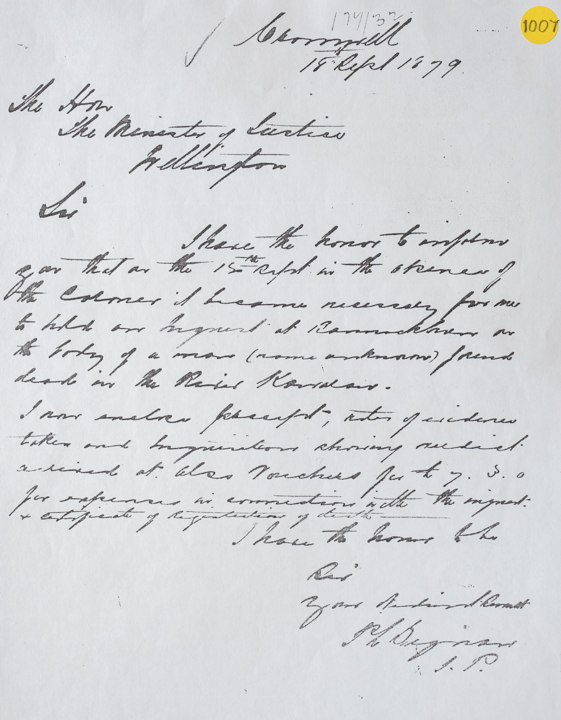 179/32
1007
Cromwell
18 Sept 1879.
The Hon
The Minister of Justice
Wellington
Sir
I have the honor to inform
you that on the 15th Sept in the absence of
the Coroner it became necessary for me
to hold an Inquest at Bannockburn on
the body of a man (name unknown) found
dead in the River Kawarau.
I now enclose precept, notes of evidence
taken and Inquisition showing verdict
arrived at. Also Vouchers for £ 7. 3. 0
for expenses in connection with the inquest.
& Certificate of Registration of death
I have the honor to be
Sir
Your Obedient Servant
J.P.